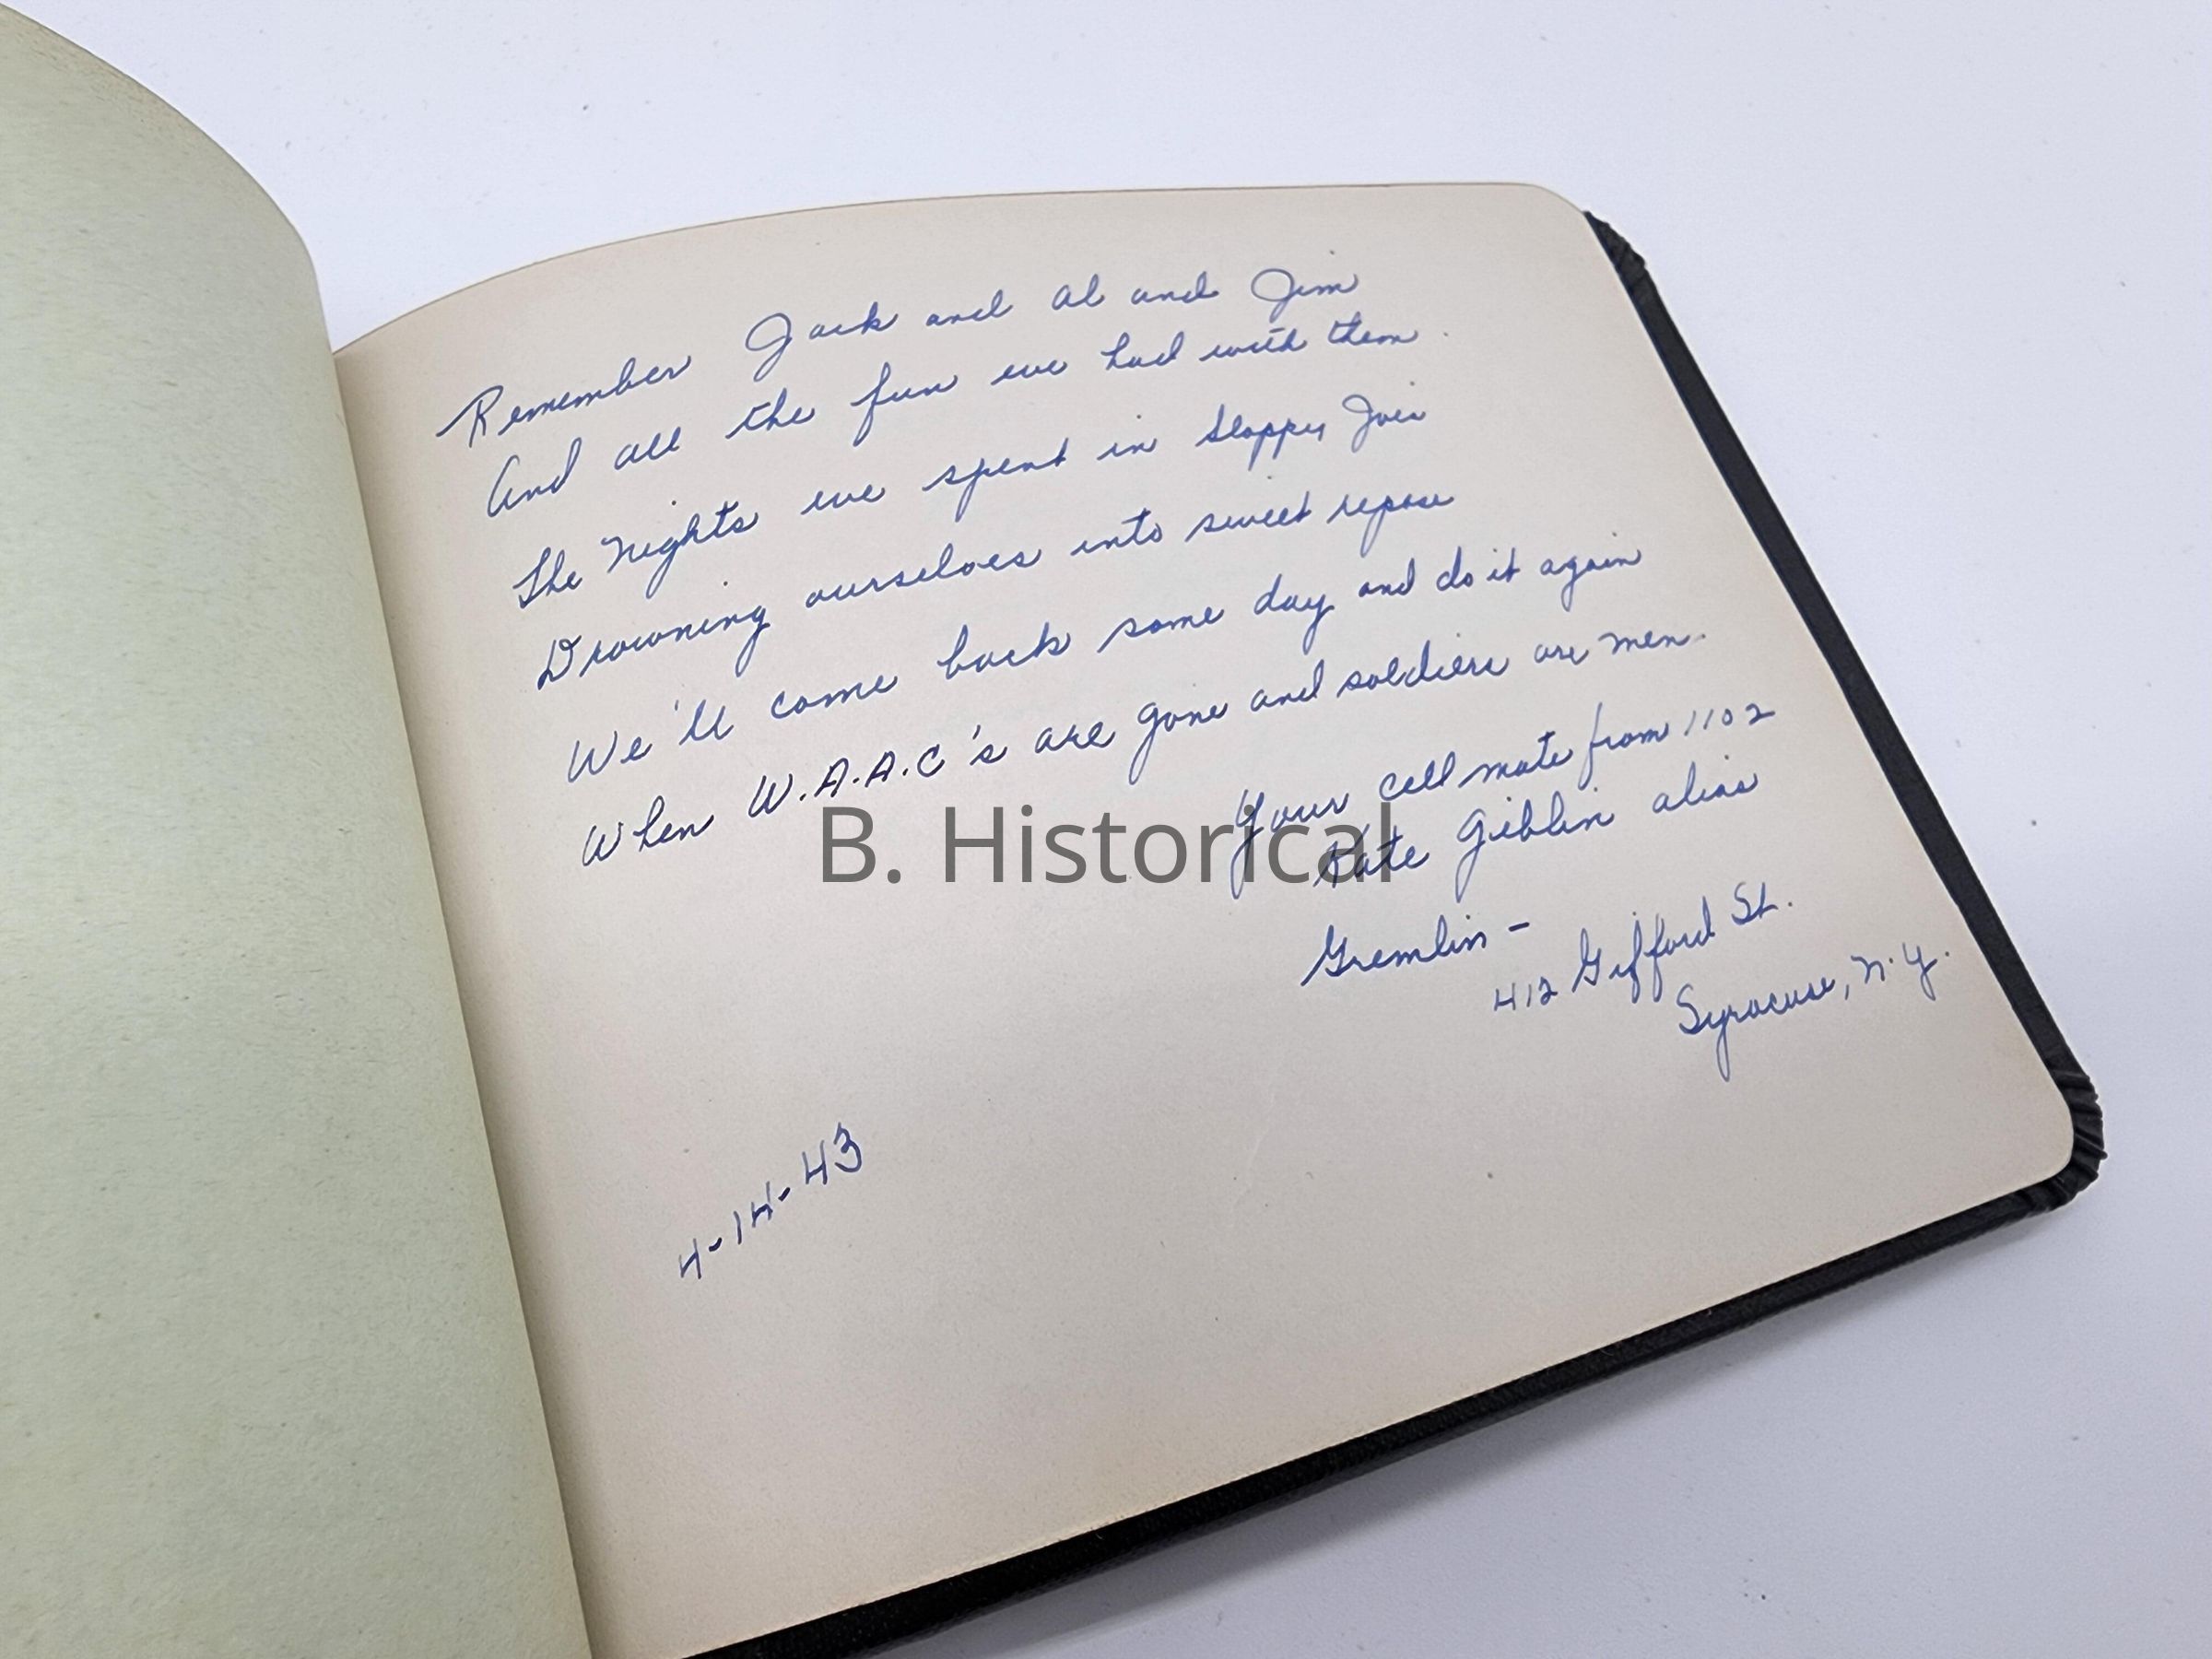 Remember Jack and Al and Jim
And all the fun we had with them.
The Nights we spent in Sloppy Joes
Drowning ourselves into sweet repose
We'll come back some day and do it again
When W.A.A.C's are gone and soldiers are men.
Your cell mate from 1102
Kate Giblin alias
Gremlin -
412 Gifford St.
Syracuse, N.Y.
4-14-43
B. Historical